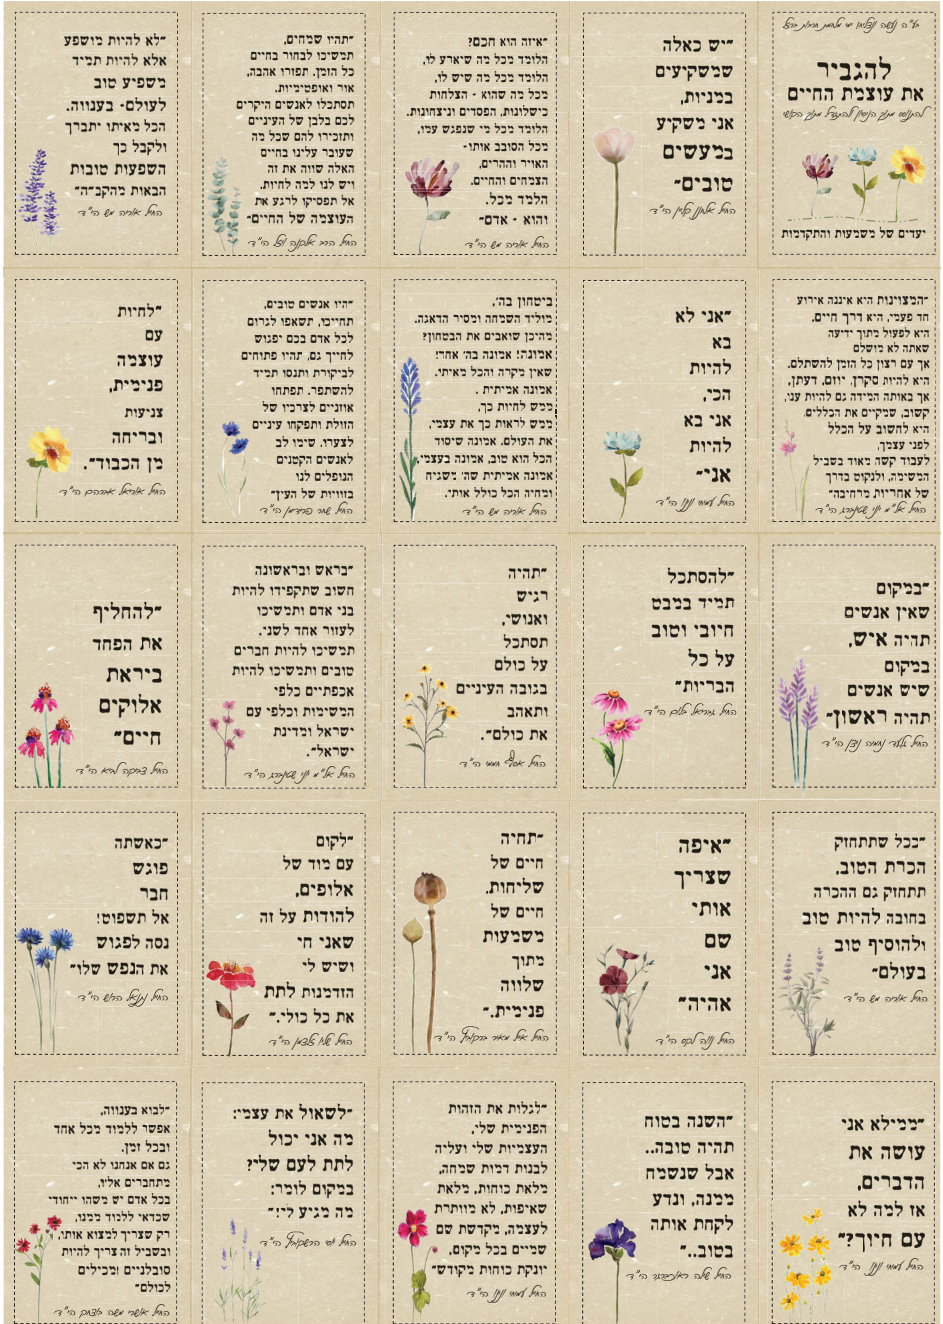 בע"ה נעשה ונצליח
להגביר
את עוצמת החיים
יעדים של משמעות והתקדמות
"יש כאלה
שמשקיעים
במניות,
אני משקיע
במעשים
טובים"
החיל
הי"ד
"איזה הוא חכם?
הלומד מכל מה שיארע לו,
הלומד מכל מה שיש לו,
מכל מה שהוא - הצלחות
כישלונות, הפסדים וניצחונות.
הלומד מכל מי שנפגש עמו,
מכל הסובב אותו-
האויר וההרים,
הצמחים והחיים.
הלמד מכל.
והוא - אדם"
החיל אוריה מש הי"ד
"תהיו שמחים,
תמשיכו לבחור בחיים
כל הזמן. תפזרו אהבה,
אור ואופטימיות.
תסתכלו לאנשים היקרים
לכם בלבן של העיניים
ותזכירו להם שכל מה
שעובר עלינו בחיים
האלה שווה את זה
ויש לנו למה לחיות.
אל תפסיקו לרגע את
העוצמה של החיים"
החיל הרב אלקנה ויזל הי"ד
"לא להיות מושפע
אלא להיות תמיד
משפיע טוב
לעולם- בענווה.
הכל מאיתו יתברך
ולקבל כך
השפעות טובות
הבאות מהקב"ה"
החיל אוריה מש הי"ד
"המצוינות היא איננה אירוע
חד פעמי, היא דרך חיים.
היא לפעול מתוך ידיעה
שאתה לא מושלם
אך עם רצון כל הזמן להשתלם.
היא להיות סקרן, יוזם, דעתן,
אך באותה המידה גם להיות ענו,
קשוב, שמקיים את הכללים.
היא לחשוב על הכלל
לפני עצמך.
לעבוד קשה מאוד בשביל
המשימה, ולנקוט בדרך
של אחריות מרחיבה"
החיל אל"מ יוני שטינברג הי"ד
"אני לא
בא
להיות
הכי,
אני בא
להיות
אני"
החיל עמיחי וננו הי"ד
ביטחון בה',
מוליד השמחה ומסיר הדאגה.
מהיכן שואבים את הבטחון?
אמונה! אמונה בה' אחד!
שאין מקרה והכל מאיתי.
אמונה אמיתית .
ממש לחיות כך,
ממש לראות כך את עצמי,
את העולם. אמונה שיסוד
הכל הוא טוב, אמונה בעצמי,
אמונה אמיתית שה' משגיח
ומחיה הכל כולל אותי.
החיל אוריה מש הי"ד
"היו אנשים טובים,
תחייכו, תשאפו לגרום
לכל אדם בכם יפגוש
לחייך גם, תהיו פתוחים
לביקורת ותנסו תמיד
להשתפר. תפתחו
אוזניים לצרכיו של
הזולת ותפקחו עיניים
לצערו. שימו לב
לאנשים הקטנים
הנופלים לנו
בזוויות של העין"
החיל שחר פרידמן הי"ד
"לחיות
עם
עוצמה
פנימית,
צניעות
ובריחה
מן הכבוד".
החיל אוריאל אברהם הי"ד
"במקום
שאין אנשים
תהיה איש,
במקום
שיש אנשים
תהיה ראשון"
החיל גלעד נחמיה ניצן הי"ד
"להסתכל
תמיד במבט
חיובי וטוב
על כל
הבריות"
החיל גבריאל בלום הי"ד
"תהיה
רגיש
ואנושי,
תסתכל
על כולם
בגובה העיניים
ותאהב
את כולם".
החיל אסף חממי הי"ד
"בראש ובראשונה
חשוב שתקפידו להיות
בני אדם ותמשיכו
לעזור אחד לשני.
תמשיכו להיות חברים
טובים ותמשיכו להיות
אכפתיים כלפי
המשימות וכלפי עם
ישראל ומדינת
ישראל".
החיל אל"מ יוני שטינברג הי"ד
"להחליף
את הפחד
ביראת
אלוקים
חיים"
החיל צדקה לביא הי"ד
"ככל שתתחזק
הכרת הטוב,
תתחזק גם ההכרה
בחובה להיות טוב
ולהוסיף טוב
בעולם"
החיל אוריה מש הי"ד
"איפה
שצריך
אותי
שם
אני
אהיה"
החיל
הי"ד
"תחיה
חיים של
שליחות,
חיים של
משמעות
מתוך
שלווה
פנימית."
החיל איל מאיר ברקוביץ הי"ד
"לקום
עם מוד של
אלופים,
להודות על זה
שאני חי
ושיש לי
הזדמנות לתת
את כל כולי."
החיל שלו זלצמן הי"ד
"כאשתה
פוגש
חבר
אל תשפוט!
נסה לפגוש
את הנפש שלו"
החיל נתנאל הרוש הי"ד
"ממילא אני
עושה את
הדברים,
אז למה לא
עם חיוך?"
החיל עמיחי וננו הי"ד
"השנה בטוח
תהיה טובה..
אבל שנשמח
ממנה, ונדע
לקחת אותה
בטוב.."
החיל
הי"ד
"לגלות את הזהות
הפנימית שלי,
העצמיות שלי ועליה
לבנות דמות שמחה,
מלאת כוחות, מלאת
שאיפות, לא מוותרת
לעצמה, מקדשת שם
שמיים בכל מקום,
יונקת כוחות מקודש"
החיל עמיחי וננו הי"ד
"לשאול את עצמי:
מה אני יכול
לתת לעם שלי?
במקום לומר:
מה מגיע לי!"
החיל יוסי הרשקוביץ הי"ד
"לבוא בענווה,
אפשר ללמוד מכל אחד
ובכל זמן.
גם אם אנחנו לא הכי
מתחברים אליו,
בכל אדם יש משהו ייחודי
שכדאי ללמוד ממנו,
רק שצריך למצוא אותו,
ובשביל זה צריך להיות
סובלניים ומכילים
לכולם"
החיל
הי"ד